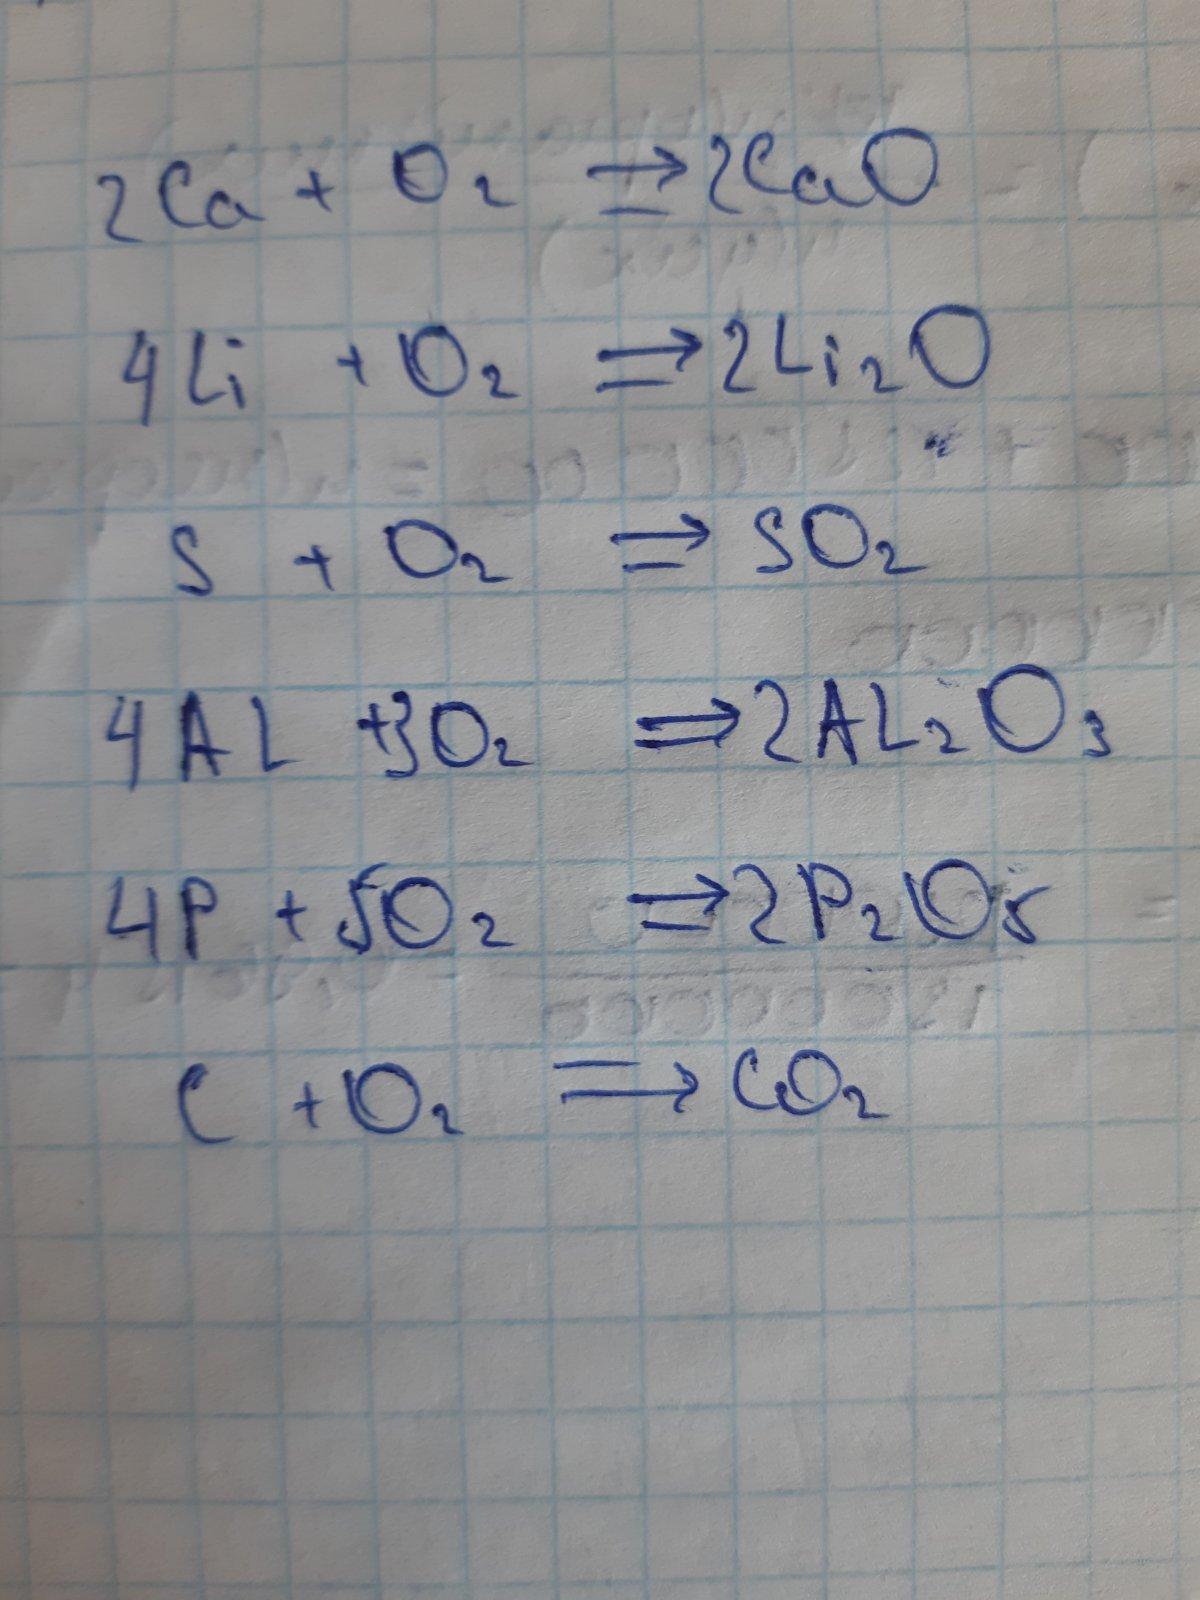 2Ca + O₂ ⇒ 2CaO
4Li + O₂ ⇒ 2Li₂O
S + O₂ ⇒ SO₂
4AL + 3O₂ ⇒ 2AL₂O₃
4P + 5O₂ ⇒ 2P₂O₅
C + O₂ ⇒ CO₂